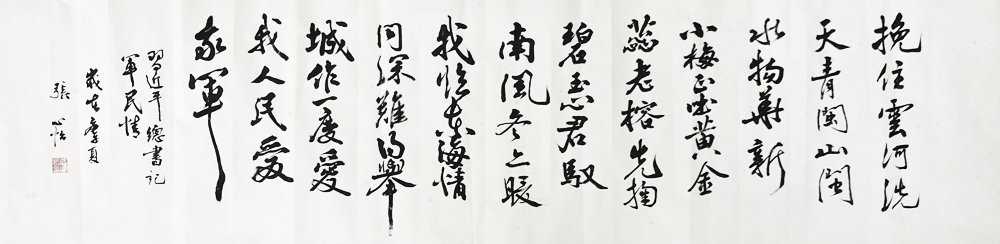 挽住雲河洗
天青閩山閩
水物華新
小梅正吐黄金
蕊老榕先掬
碧玉心君馭
南風冬亦暖
我临东海情
同深難得舉
城作一慶愛
我人民愛
我軍
習近平總書記
軍民情
歲在夏
張